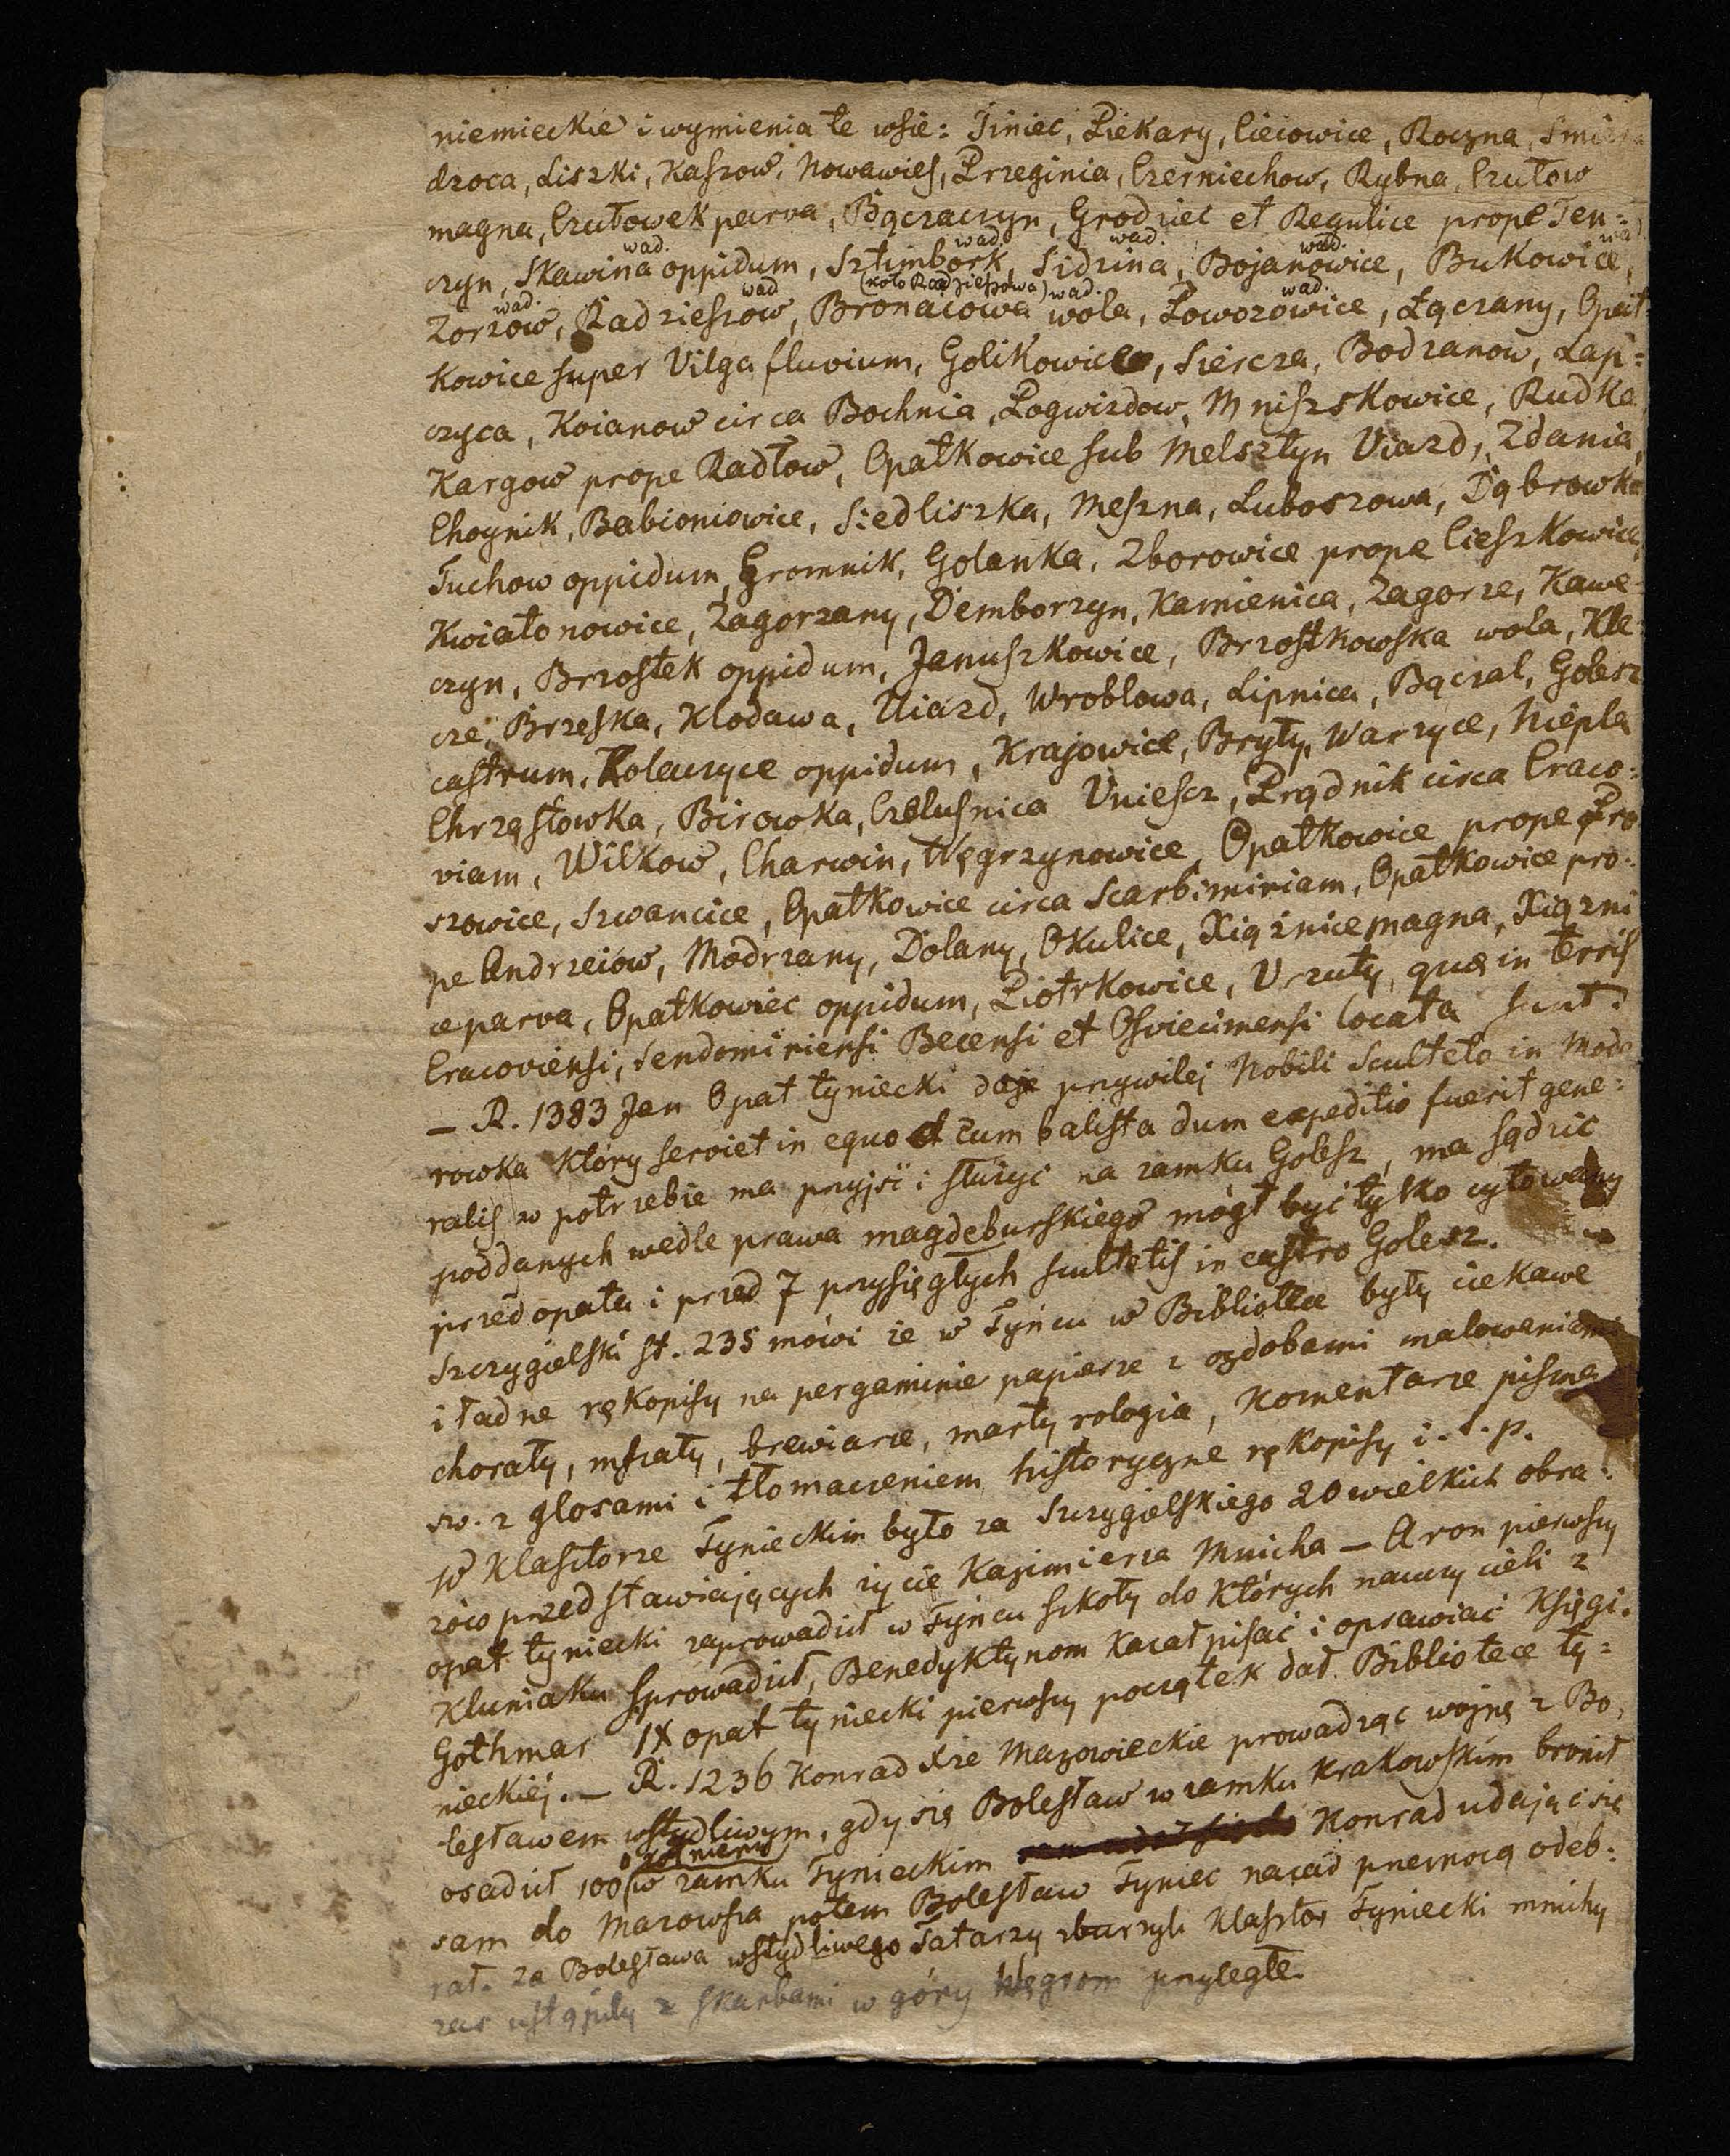 niemieckie i wymienia te wsie: Tiniec, Piekary, Cieiowice, Roczna, Smier
dzoca, Liszki, Kaszow, Nowawies, Przeginia, Czerniechow, Rybna, Czułow
magna, Czułowek parva, Bączaczyn, Grodziec et Regulice prope Ten=
wad. wad. wad. wad. wad.
czyn, Skawina oppidum, Sztimbork, Sidzina, Bojanowice, Bukowice,
wad. wad (koło Radzieszowa) wad. wad.
Zorzow, Radzieszow, Bronacowa wola, Poworowice, Łączany, Opat
kowice super Vilga fluvium, Golikowice, Siercza, Bodzanow, Lap=
czyca, Koianow circa Bochnia, Pogwizdow, Mniszkowice, Rudka
Kargow prope Radłow, Opatkowice sub Melsztyn Viazd, Zdania,
Choynik, Babioniowice, Siedliszka, Meszna, Luboszowa, Dąbrowka
Tuchow oppidum, Gromnik, Golanka, Zborowice prope Cieszkowice,
Kwiatonowice, Zagorzany, Demborzyn, Kamienica, Zagorze, Kawe
czyn, Brzostek oppidum, Januszkowice, Brzostkowska wola, Kle
cze, Brzeska, Klodawa, Uiazd, Wroblowa, Lipnica, Bączal, Golesz
castrum, Kolaczyce oppidum, Krajowice, Bryły, Warzyce, Niepla
Chrząstowka, Birowka, Czelusnica Uniescz, Prądnik circa Craco=
viam, Wilkow, Charwin, Węgrzynowice, Opatkowice prope Pro
szowice, Szwancice, Opatkowice circa Scarbimiriam, Opatkowice pro=
pe Andrzeiow, Modrzany, Dolany, Okulice, Xiąznice magna, Xiązni
ce parva, Opatkowiec oppidum, Piotrkowice, Vrzuty, quæ in terris
Cracoviensi, Sendomiriensi Becensi et Osviecimensi locata sunt.
– R. 1383 Jan Opat tyniecki daje przywilej Nobili Sculteto in Mode
rowka który serviet in equo et cum balista dum expeditio fuerit gene=
ralis w potrzebie ma przyjść i służyć na zamku Golesz, ma sądzić
poddanych wedle prawa magdeburskiego mógł być tylko cytowany
przed opata i przed 7 przysięgłych scultetis in castro Golesz.
Szczygielski st. 235 mówi że w Tyńcu w Bibliotece były ciekawe
i ładne rękopisy na pergaminie papierze z ozdobami malowaniami
chorały, mszały, brewiarze, martyrologia, Komentarze pisma
św. z glosami i tłomaczeniem historyczne rękopisy i. t. p.
W Klasztorze Tynieckim było za Szczygielskiego 20 wielkich obra=
zów przedstawiających życie Kazimierza Mnicha – Aron pierwszy
opat tyniecki zaprowadził w Tyńcu szkoły do których nauczycieli z
Kluniaku sprowadził, Benedyktynom kazał pisać i oprawiać Księgi.
Gothmar IX opat tyniecki pierwszy początek dał Bibliotece ty=
nieckiéj. – R. 1236 Konrad Xże Mazowieckie prowadząc wojnę z Bo,
lesławem wstydliwym, gdy się Bolesław w zamku Krakowskim bronił
żołnierzy
osadził 100 w zamku Tynieckim Konrad udając się
sam do Mazowsza potem Bolesław Tyniec nazad przemocą odeb=
rał. Za Bolesława wstydliwego Tatarzy zburzyli Klasztor Tyniecki mnichy
zas ustąpiły z skarbami w góry Węgrom przyległe.